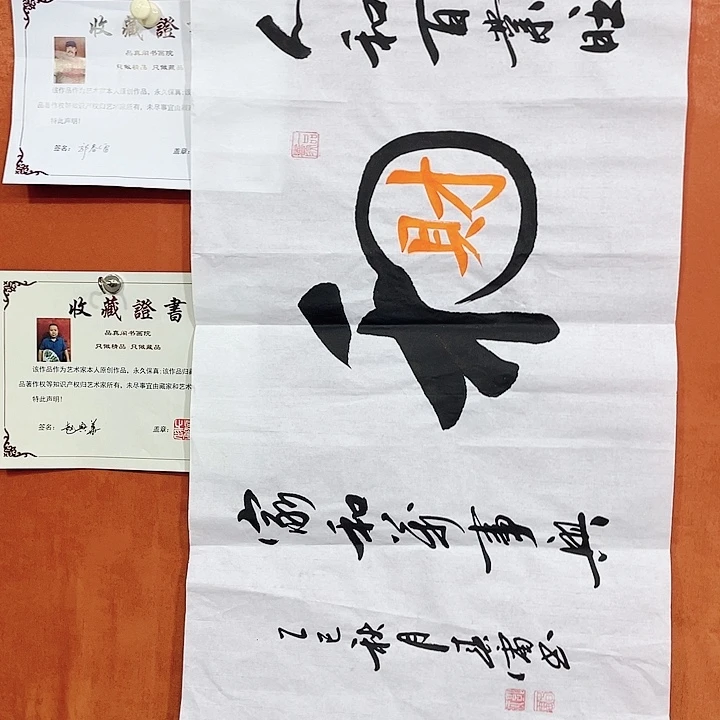 收藏證
品真阁书画院
只做精品 只做藏品
该作品作为艺术家本人原创作品，永久保真;该
品著作权等知识产权归艺术家所有，未尽事宜
特此声明！
签名： 盖章：
收藏證書
品真阁书画院
只做精品 只做藏品
该作品作为艺术家本人原创作品，永久保真;该作品归藏
品著作权等知识产权归艺术家所有，未尽事宜由藏家和艺术
特此声明！
签名： 盖章：
人和百業旺
和
財
家和萬事興
乙巳秋月